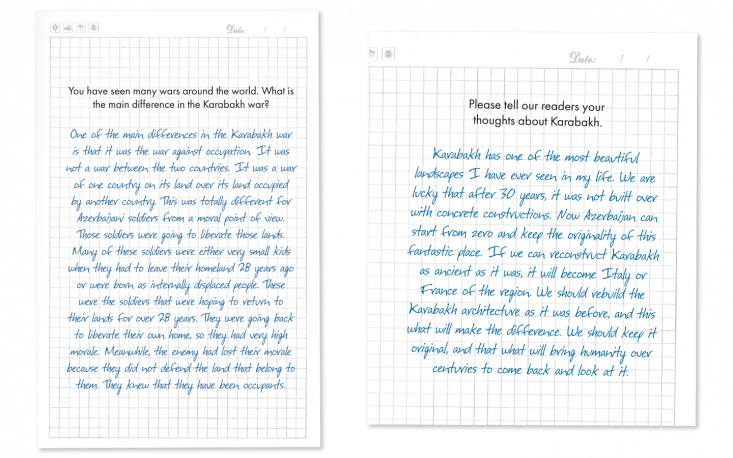 Date: / /
You have seen many wars around the world. What is
the main difference in the Karabakh war?
One of the main differences in the Karabakh war
is that it was the war against occupation. It was
not a war between the two countries. It was a war
of one country on its land over its land occupied
by another country. This was totally different for
Azerbaijani soldiers from a moral point of view.
Those soldiers were going to liberate those lands.
Many of these soldiers were either very small kids
when they had to leave their homeland 28 years ago
or were born as internally displaced people. These
were the soldiers that were hoping to return to
their lands for over 28 years. They were going back
to liberate their own home, so they had very high
morale. Meanwhile, the enemy had lost their morale
because they did not defend the land that belong to
them. They knew that they have been occupants.
Date: / /
Please tell our readers your
thoughts about Karabakh.
Karabakh has one of the most beautiful
landscapes I have ever seen in my life. We are
lucky that after 30 years, it was not built over
with concrete constructions. Now Azerbaijan can
start from zero and keep the originality of this
fantastic place. If we can reconstruct Karabakh
as ancient as it was, it will become Italy or
France of the region. We should rebuild the
Karabakh architecture as it was before, and this
what will make the difference. We should keep it
original, and that what will bring humanity over
centuries to come back and look at it.